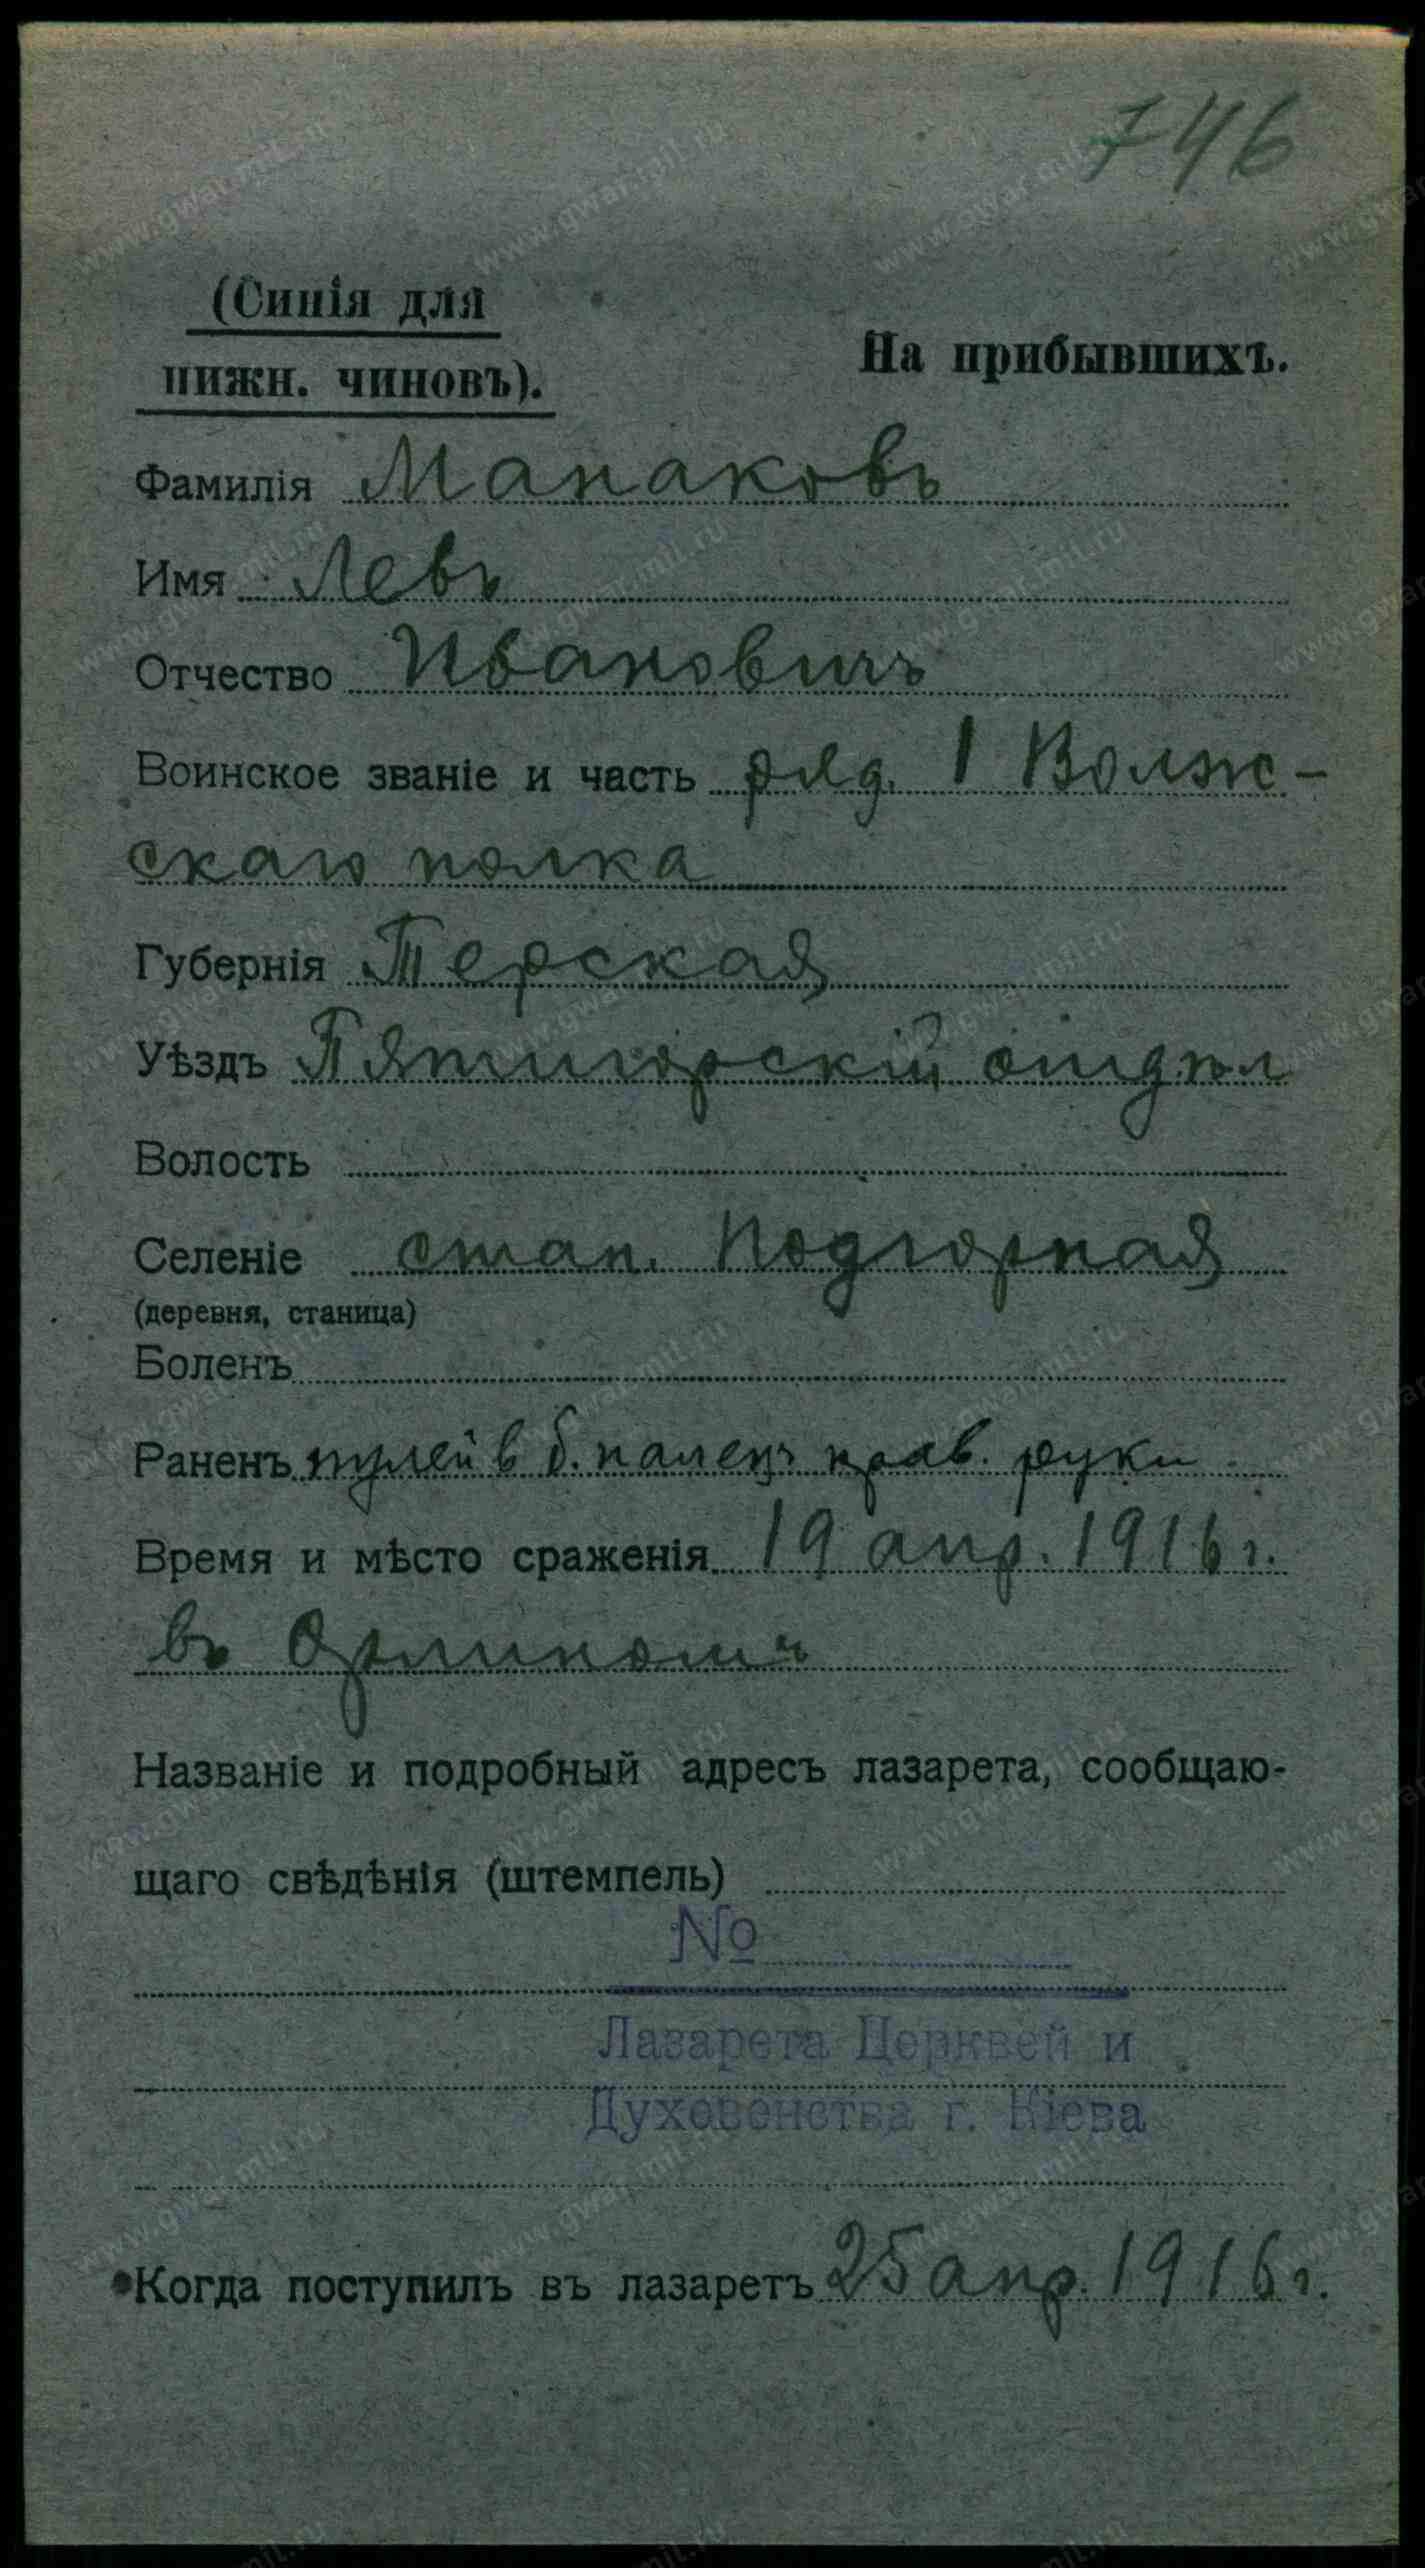 746
(Синія для
нижн. чиновъ).
На прибывшихъ.
Фамилія Манаковъ
Имя Левъ
Отчество Ивановичъ
Воинское званіе и часть ряд. 1 Волж-
скаго полка
Губернія Терская
Уѣздъ Пятигорскій отдѣл
Волость
Селеніе стан. Подгорная
(деревня, станица)
Боленъ
Раненъ пулей в б. палецъ прав. руки
Время и мѣсто сраженія 19 апр. 1916 г.
въ
Названіе и подробный адресъ лазарета, сообщаю-
щаго свѣдѣнія (штемпель)
№
Лазарета Церквей и
Духовенства г. Кіева
Когда поступилъ въ лазаретъ 25 апр. 1916 г.
www.gwar.mil.ru